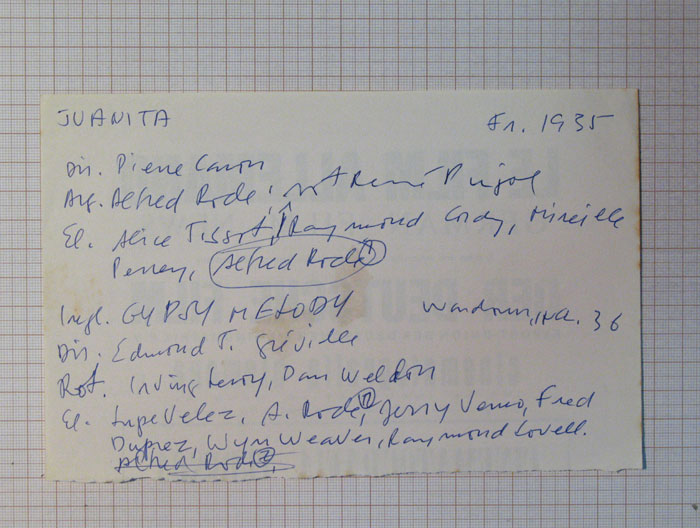 JUANITA Fr. 1935
Dir. Pierre Caron
Arg. Alfred Rode, René Pujol
El. Alice Tissot, Raymond Cordy, Mireille
Perrey, Alfred Rode ①
Ingl. GYPSY MELODY 36
Dir. Edmond T. Gréville
Irving Leroy, Dan Weldon
El. Lupe Velez, A. Rode ②, Jerry Verno, Fred
Duprez, Wyn Weaver, Raymond Lovell.
Alfred Rode ②